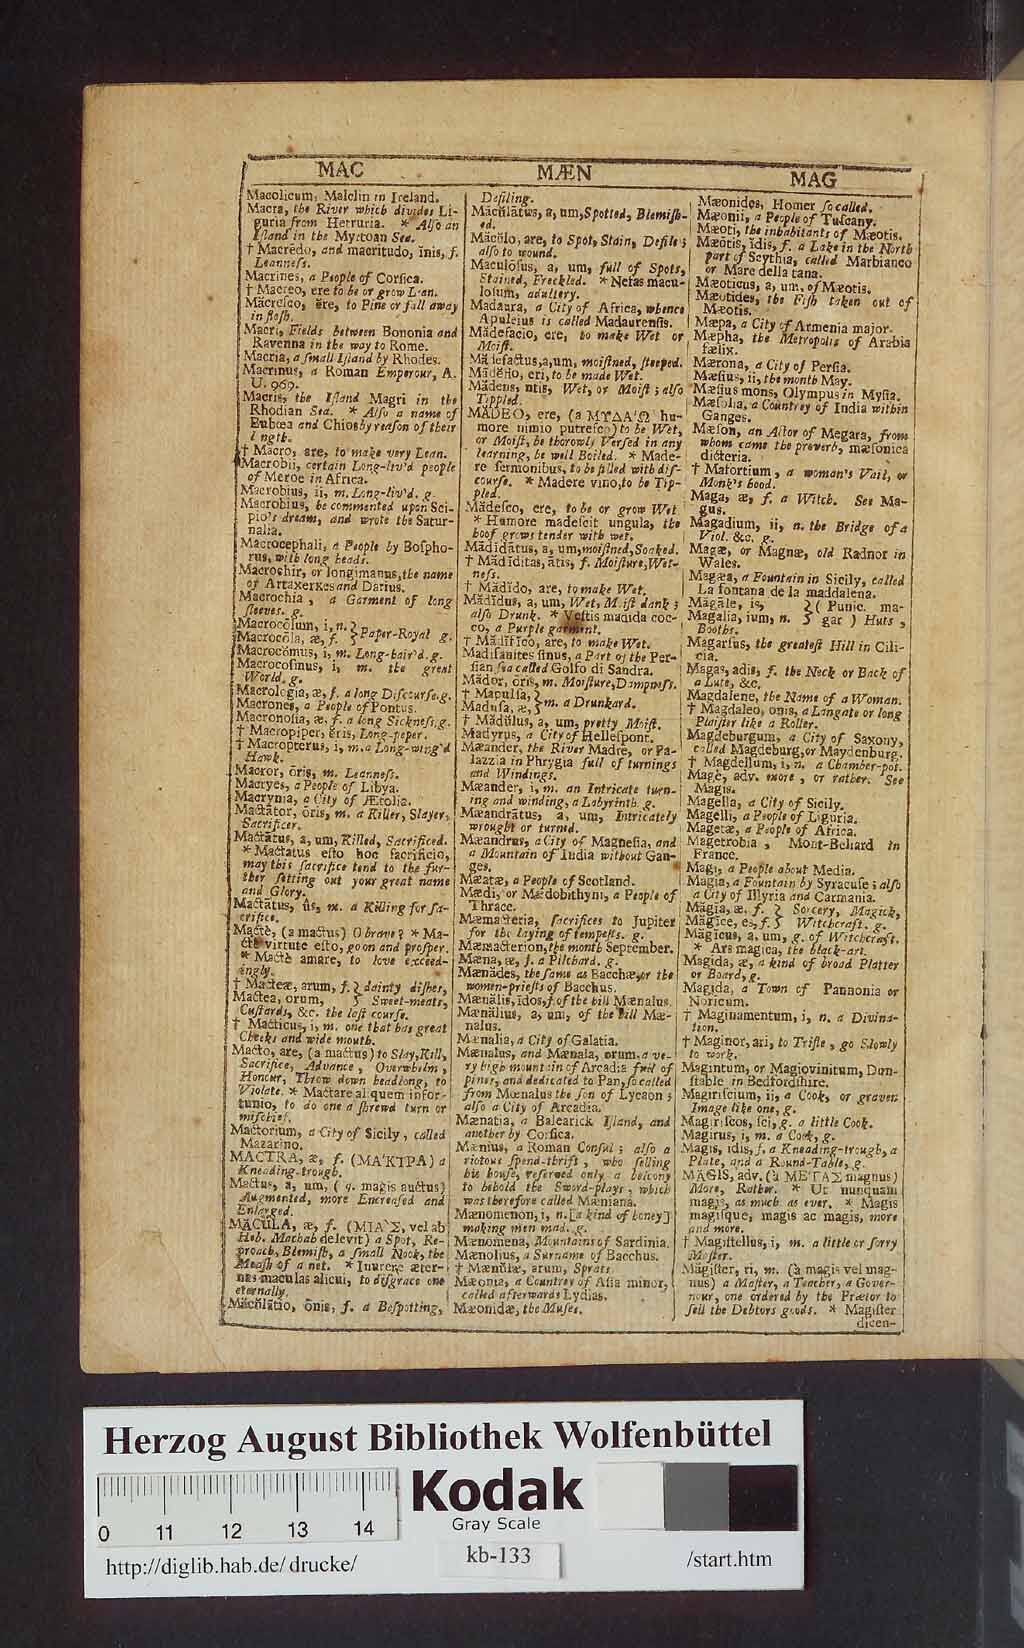 MAC
MÆN
MAG
Macolicum, Malclin in Ireland.
Macra, the River which divides Li-
guria from Hetruria. * Also an
Iſland in the Myrtoan Sea.
† Macrēdo, and macritudo, ĭnis, f.
Leanneſs.
Macrines, a People of Corſica.
† Macreo, ere to be or grow Lean.
Mācreſco, ĕre, to Pine or fall away
in fleſh.
Macri, Fields between Bononia and
Ravenna in the way to Rome.
Macria, a ſmall Iſland by Rhodes.
Macrinus, a Roman Emperour, A.
U. 969.
Macris, the Iſland Magri in the
Rhodian Sea. * Alſo a name of
Eubœa and Chios by reaſon of their
length.
† Macro, are, to make very Lean.
Macrobii, certain Long-liv'd people
of Meroe in Africa.
Macrobius, ii, m. Long-liv'd. g.
Macrobius, he commented upon Sci-
pio's dream, and wrote the Satur-
nalia.
Macrocephali, a People by Boſpho-
rus, with long heads.
Macrochir, or longimanus, the name
of Artaxerxes and Darius.
Macrochia, a Garment of long
ſleeves. g.
Macrocōlum, i, n. }
Macrocōla, æ, f. } Paper-Royal g.
Macrocŏmus, i, m. Long-hair'd. g.
Macrocoſmus, i, m. the great
World. g.
Macrologia, æ, f. a long Diſcourſe. g.
Macrones, a People of Pontus.
Macronoſia, æ, f. a long Sickneſs, g.
† Macropiper, ĕris, Long-peper.
† Macropterus, i, m. a Long-wing'd
Hawk.
Macror, ōris, m. Leanneſs.
Macryes, a People of Libya.
Macrynia, a City of Ætolia.
Mactātor, ōris, m. a Killer, Slayer,
Sacrificer.
Mactātus, a, um, Killed, Sacrificed.
* Mactatus eſto hoc ſacrificio,
may this ſacrifice tend to the fur-
ther ſetting out your great name
and Glory.
Mactātus, ûs, m. a Killing for ſa-
crifice.
Mactè, (a mactus) O brave? * Ma-
ctè virtute eſto, go on and proſper.
* Mactè amare, to love exceed-
ingly.
† Macteæ, arum, f. } dainty diſhes,
Mactea, orum, } Sweet-meats,
Cuſtards, &c. the laſt courſe.
† Macticus, i, m. one that has great
Cheeks and wide mouth.
Macto, are, (a mactus) to Slay, Kill,
Sacrifice, Advance, Overwhelm,
Honour, Throw down headlong, to
Violate. * Mactare aliquem infor-
tunio, to do one a ſhrewd turn or
miſchief.
Mactorium, a City of Sicily, called
Mazarino.
MACTRA, æ, f. (ΜΑ'ΚΤΡΑ) a
Kneading-trough.
Mactus, a, um, (q. magis auctus)
Augmented, more Encreaſed and
Enlarged.
MĂCŬLA, æ, f. (ΜΙΑ'Σ, vel ab
Heb. Machab delevit) a Spot, Re-
proach, Blemiſh, a ſmall Nock, the
Meaſh of a net. * Inurere æter-
nas maculas alicui, to diſgrace one
eternally.
Măcŭlātio, ōnis, f. a Beſpotting,
Defiling.
Măcŭlātus, a, um, Spotted, Blemiſh-
ed.
Măcŭlo, are, to Spot, Stain, Defile;
alſo to wound.
Maculōſus, a, um, full of Spots,
Stained, Freckled. * Nefas macu-
loſum, adultery.
Madaura, a City of Africa, whence
Apuleius is called Madaurenſis.
Mădefacio, ere, to make Wet or
Moiſt.
Mădefactus, a, um, moiſtned, ſteeped.
Mădĕfio, eri, to be made Wet.
Mădens, ntis, Wet, or Moiſt; alſo
Tippled.
MĂDEO, ere, (a ΜΥΔΑ'Ω hu-
more nimio putreſco) to be Wet,
or Moiſt, be thorowly Verſed in any
learning, be well Boiled. * Made-
re ſermonibus, to be filled with diſ-
courſe. * Madere vino, to be Tip-
pled.
Mădeſco, ere, to be or grow Wet
* Humore madeſcit ungula, the
hoof grows tender with wet.
Mădĭdātus, a, um, moiſtned, Soaked.
† Mădĭditas, ātis, f. Moiſture, Wet-
neſs.
† Mădĭdo, are, to make Wet.
Mădĭdus, a, um, Wet, Moiſt dank;
alſo Drunk. * Veſtis madida coc-
co, a Purple garment.
† Mădĭfĭco, are, to make Wet.
Madiſanites ſinus, a Part of the Per-
ſian ſea called Golfo di Sandra.
Mădor, ōris, m. Moiſture, Dampneſs.
† Mapulſa, }
Maduſa, æ, } m. a Drunkard.
† Mădŭlus, a, um, pretty Moiſt.
Madyrus, a City of Helleſpont.
Mæander, the River Madre, or Pa-
lazzia in Phrygia full of turnings
and Windings.
Mæander, i, m. an Intricate turn-
ing and winding, a Labyrinth. g.
Mæandrātus, a, um, Intricately
wrought or turned.
Mæandrus, a City of Magneſia, and
a Mountain of India without Gan-
ges.
Mæatæ, a People of Scotland.
Mædi, or Mædobithyni, a People of
Thrace.
Mæmacteria, ſacrifices to Jupiter
for the laying of tempeſts. g.
Mæmacterion, the month September.
Mæna, æ, f. a Pilchard. g.
Mænădes, the ſame as Bacchæ, or the
women-prieſts of Bacchus.
Mænălis, ĭdos, f. of the hill Mænalus.
Mænălius, a, um, of the hill Mæ-
nalus.
Mænalia, a City of Galatia.
Mænalus, and Mænala, orum, a ve-
ry high mountain of Arcadia full of
pines, and dedicated to Pan, ſo called
from Mœnalus the ſon of Lycaon;
alſo a City of Arcadia.
Mænatia, a Balearick Iſland, and
another by Corſica.
Mænius, a Roman Conſul; alſo a
riotous ſpend-thrift, who ſelling
his houſe, reſerved only a belcony
to behold the Sword-plays, which
was therefore called Mæniana.
Mænomenon, i, n. [a kind of honey]
making men mad. g.
Mænomena, Mountains of Sardinia.
Mænolius, a Surname of Bacchus.
† Mænŭlæ, arum, Sprats.
Mæonia, a Countrey of Aſia minor,
called afterwards Lydias.
Mæonidæ, the Muſes.
Mæonides, Homer ſo called.
Mæonii, a People of Tuſcany.
Mæoti, the inhabitants of Mæotis.
Mæōtis, ĭdis, f. a Lake in the North
part of Scythia, called Marbianco
or Mare della tana.
Mæoticus, a, um, of Mæotis.
Mæotides, the Fiſh taken out of
Mæotis.
Mæpa, a City of Armenia major.
Mæpha, the Metropolis of Arabia
fælix.
Mærona, a City of Perſia.
Mæſius, ii, the month May.
Mæſius mons, Olympus in Myſia.
Mæſolia, a Countrey of India within
Ganges.
Mæſon, an Actor of Megara, from
whom came the proverb, mæſonica
dicteria.
† Mafortium, a woman's Vail, or
Monk's hood.
Maga, æ, f. a Witch. See Ma-
gus.
Magadium, ii, n. the Bridge of a
Viol. &c. g.
Magæ, or Magnæ, old Radnor in
Wales.
Magæa, a Fountain in Sicily, called
La fontana de la maddalena.
Māgāle, is, } (Punic. ma-
Magalia, ium, n. } gar) Huts,
Booths.
Magarſus, the greateſt Hill in Cili-
cia.
Magas, adis, f. the Neck or Back of
a Lute, &c.
Magdalene, the Name of a Woman.
† Magdaleo, onis, a Langate or long
Plaiſter like a Roller.
Magdeburgum, a City of Saxony,
called Magdeburg, or Maydenburg.
† Magdellum, i, n. a Chamber-pot.
Magè, adv. more, or rather. See
Magis.
Magella, a City of Sicily.
Magelli, a People of Liguria.
Magetæ, a People of Africa.
Magetrobia, Mont-Beliard in
France.
Magi, a People about Media.
Magia, a Fountain by Syracuſe; alſo
a City of Illyria and Carmania.
Măgia, æ. f. } Sorcery, Magick,
Măgĭce, es, f. } Witchcraft. g.
Măgĭcus, a, um, g. of Witchcraft.
* Ars magica, the black-art.
Magida, æ, a kind of broad Platter
or Board, g.
Magida, a Town of Pannonia or
Noricum.
† Maginamentum, i, n. a Divina-
tion.
† Maginor, ari, to Trifle, go Slowly
to work.
Magintum, or Magiovinitum, Dun-
ſtable in Bedfordſhire.
Magiriſcium, ii, a Cook, or graven
Image like one, g.
Magiriſcos, ſci, g. a little Cook.
Magirus, i, m. a Cook, g.
Magis, idis, f. a Kneading-trough, a
Plate, and a Round-Table, g.
MĂGIS, adv. (à ΜΕ'ΓΑΣ magnus)
More, Rather. * Ut nunquam
magis, as much as ever. * Magis
magiſque, magis ac magis, more
and more.
† Magiſtellus, i, m. a little or ſorry
Maſter.
Măgiſter, ri, m. (à magis vel mag-
nus) a Maſter, a Teacher, a Gover-
nour, one ordered by the Prætor to
ſell the Debtors goods. * Magiſter
dicen-
Herzog August Bibliothek Wolfenbüttel
Kodak
Gray Scale
0 11 12 13 14
kb-133
http://diglib.hab.de/drucke/
/start.htm